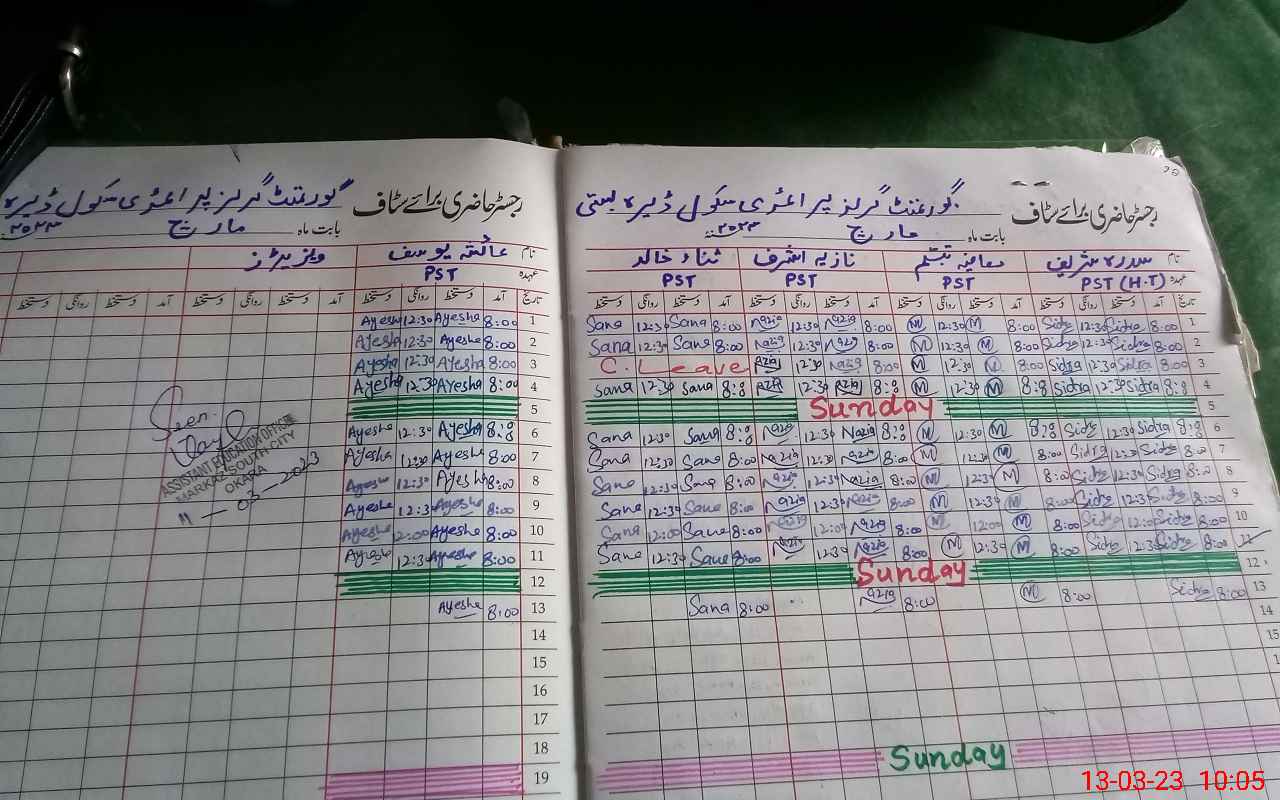 رجسٹر حاضری برائے سٹاف گورنمنٹ گرلز پرائمری سکول ڈیرہ بستی
بابت ماہ مارچ ۲۰۲۳ء
نام سدرہ شریف معافیہ تبسم نازیہ اشرف ثناء خالد
عہدہ PST (H.T) PST PST PST
تاریخ آمد دستخط روانگی دستخط آمد دستخط روانگی دستخط آمد دستخط روانگی دستخط آمد دستخط روانگی دستخط
1 8:00 Sidra 12:30 Sidra 8:00 M 12:30 M 8:00 Nazia 12:30 Nazia 8:00 Sana 12:30 Sana
2 8:00 Sidra 12:30 Sidra 8:00 M 12:30 M 8:00 Nazia 12:30 Nazia 8:00 Sana 12:30 Sana
3 8:00 Sidra 12:30 Sidra 8:00 M 12:30 M 8:00 Nazia 12:30 Nazia C. Leave
4 8:8 Sidra 12:30 Sidra 8:8 M 12:30 M 8:8 Nazia 12:30 Nazia 8:8 Sana 12:30 Sana
5 Sunday
6 8:8 Sidra 12:30 Sidra 8:8 M 12:30 M 8:8 Nazia 12:30 Nazia 8:8 Sana 12:30 Sana
7 8:00 Sidra 12:30 Sidra 8:00 M 12:30 M 8:00 Nazia 12:30 Nazia 8:00 Sana 12:30 Sana
8 8:00 Sidra 12:30 Sidra 8:00 M 12:30 M 8:00 Nazia 12:30 Nazia 8:00 Sana 12:30 Sana
9 8:00 Sidra 12:30 Sidra 8:00 M 12:30 M 8:00 Nazia 12:30 Nazia 8:00 Sana 12:30 Sana
10 8:00 Sidra 12:00 Sidra 8:00 M 12:00 M 8:00 Nazia 12:00 Nazia 8:00 Sana 12:00 Sana
11 8:00 Sidra 12:30 Sidra 8:00 M 12:30 M 8:00 Nazia 12:30 Nazia 8:00 Sana 12:30 Sana
12 Sunday
13 8:00 Sidra 8:00 M 8:00 Nazia 8:00 Sana
14
15
Sunday
رجسٹر حاضری برائے سٹاف گورنمنٹ گرلز پرائمری سکول ڈیرہ
بابت ماہ مارچ ۲۰۲۳ء
نام عائشہ یوسف ویزیٹرز
عہدہ PST
تاریخ آمد دستخط روانگی دستخط آمد دستخط روانگی دستخط آمد دستخط روانگی دستخط
1 8:00 Ayesha 12:30 Ayesha
2 8:00 Ayesha 12:30 Ayesha
3 8:00 Ayesha 12:30 Ayesha
4 8:00 Ayesha 12:30 Ayesha
5
6 8:8 Ayesha 12:30 Ayesha
7 8:00 Ayesha 12:30 Ayesha
8 8:00 Ayesha 12:30 Ayesha
9 8:00 Ayesha 12:30 Ayesha
10 8:00 Ayesha 12:00 Ayesha
11 8:00 Ayesha 12:30 Ayesha
12
13 8:00 Ayesha
14
15
16
17
18
19
Seen.
ASSISTANT EDUCATION OFFICER
MARKAZ SOUTH CITY
OKARA
11-03-2023
13-03-23 10:05